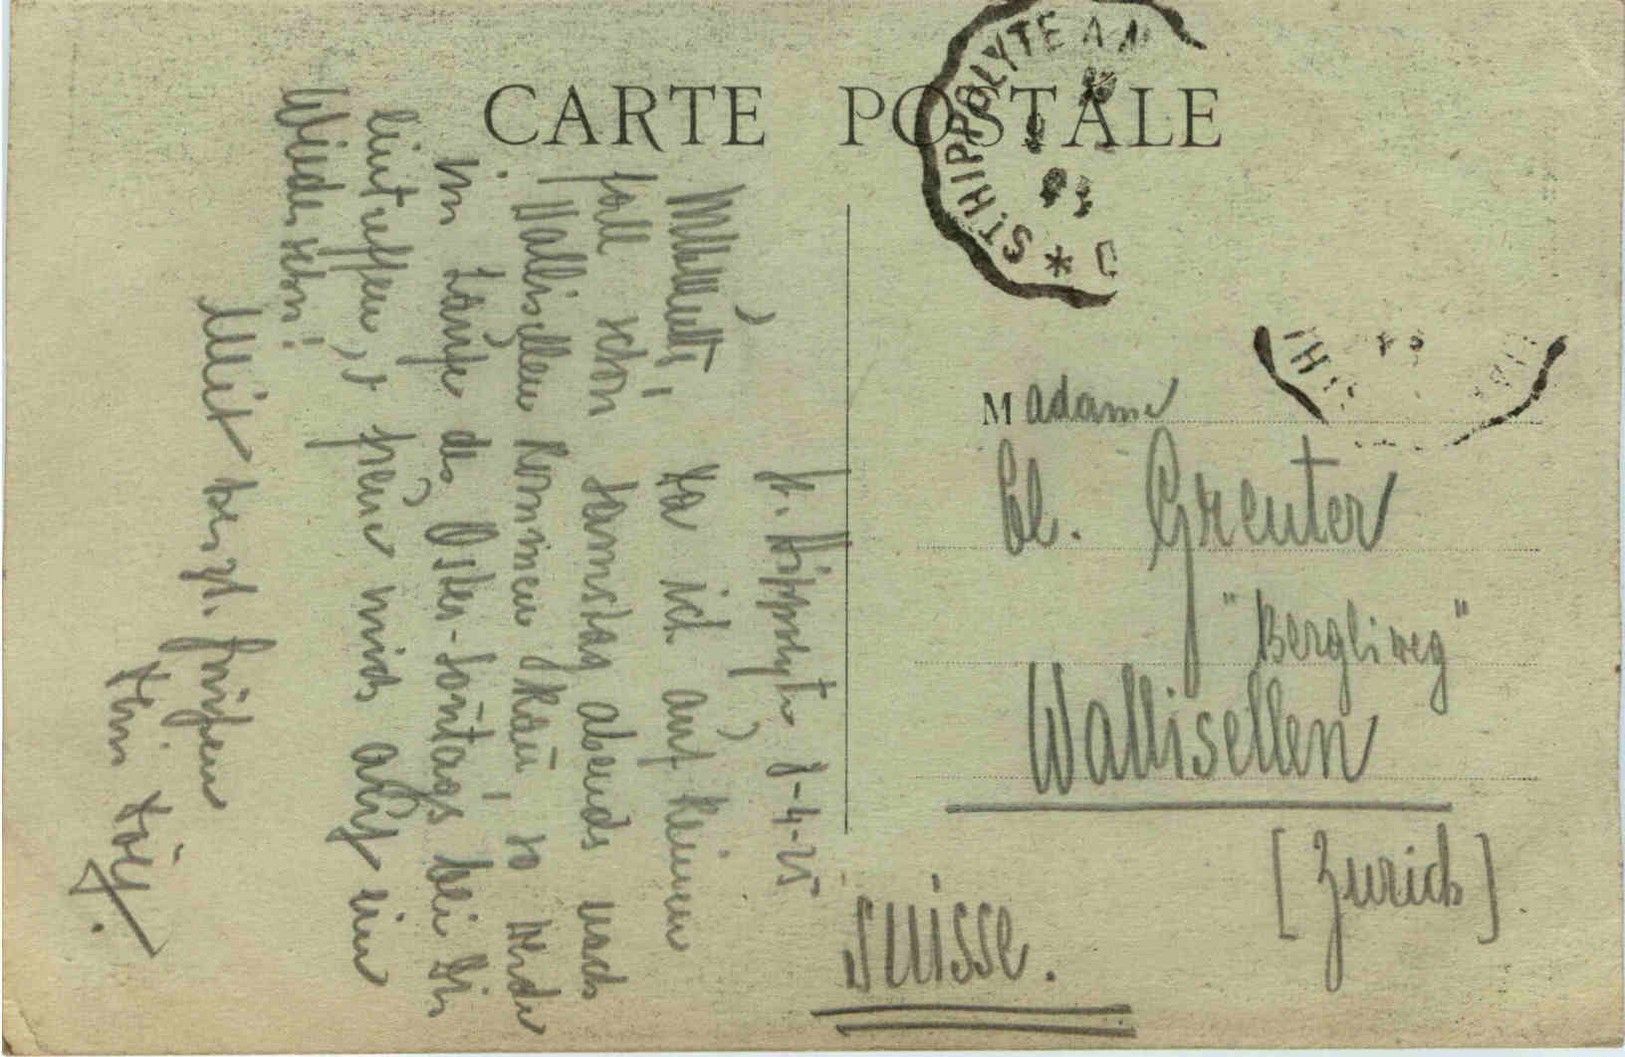 CARTE POSTALE
ST HIPPOLYTE
St. Hippolyte 8-4-25
Da ich auf keinen
fall schon Samstag abends nach
Wallisellen kommen kann, so werde
im Laufe des Oster-Sontags bei Dir
eintreffen, & freue mich auf ein
Wiedersehn!
Mit herzl. Grüssen
Dein Dölf.
Madame
Cl. Greuter
"Bergliweg"
Wallisellen
[Zurich]
Suisse.